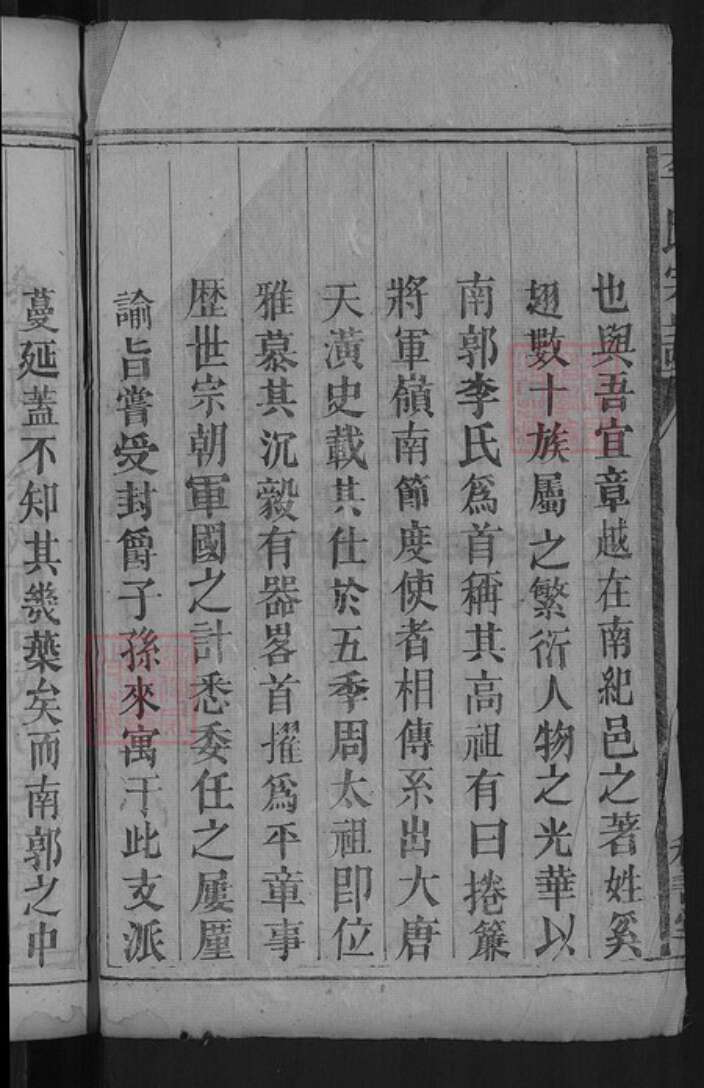 李氏宗譜
也與吾宜章越在南紀邑之著姓奚
翅數十族屬之繁衍人物之光華以
南郭李氏爲首稱其高祖有曰捲簾
將軍嶺南節度使者相傳系出大唐
天潢史載其仕於五季周太祖即位
雅慕其沉毅有器畧首擢爲平章事
歷世宗朝軍國之計悉委任之屢厪
諭旨嘗受封爵子孫來寓于此支派
蔓延蓋不知其幾葉矣而南郭之中